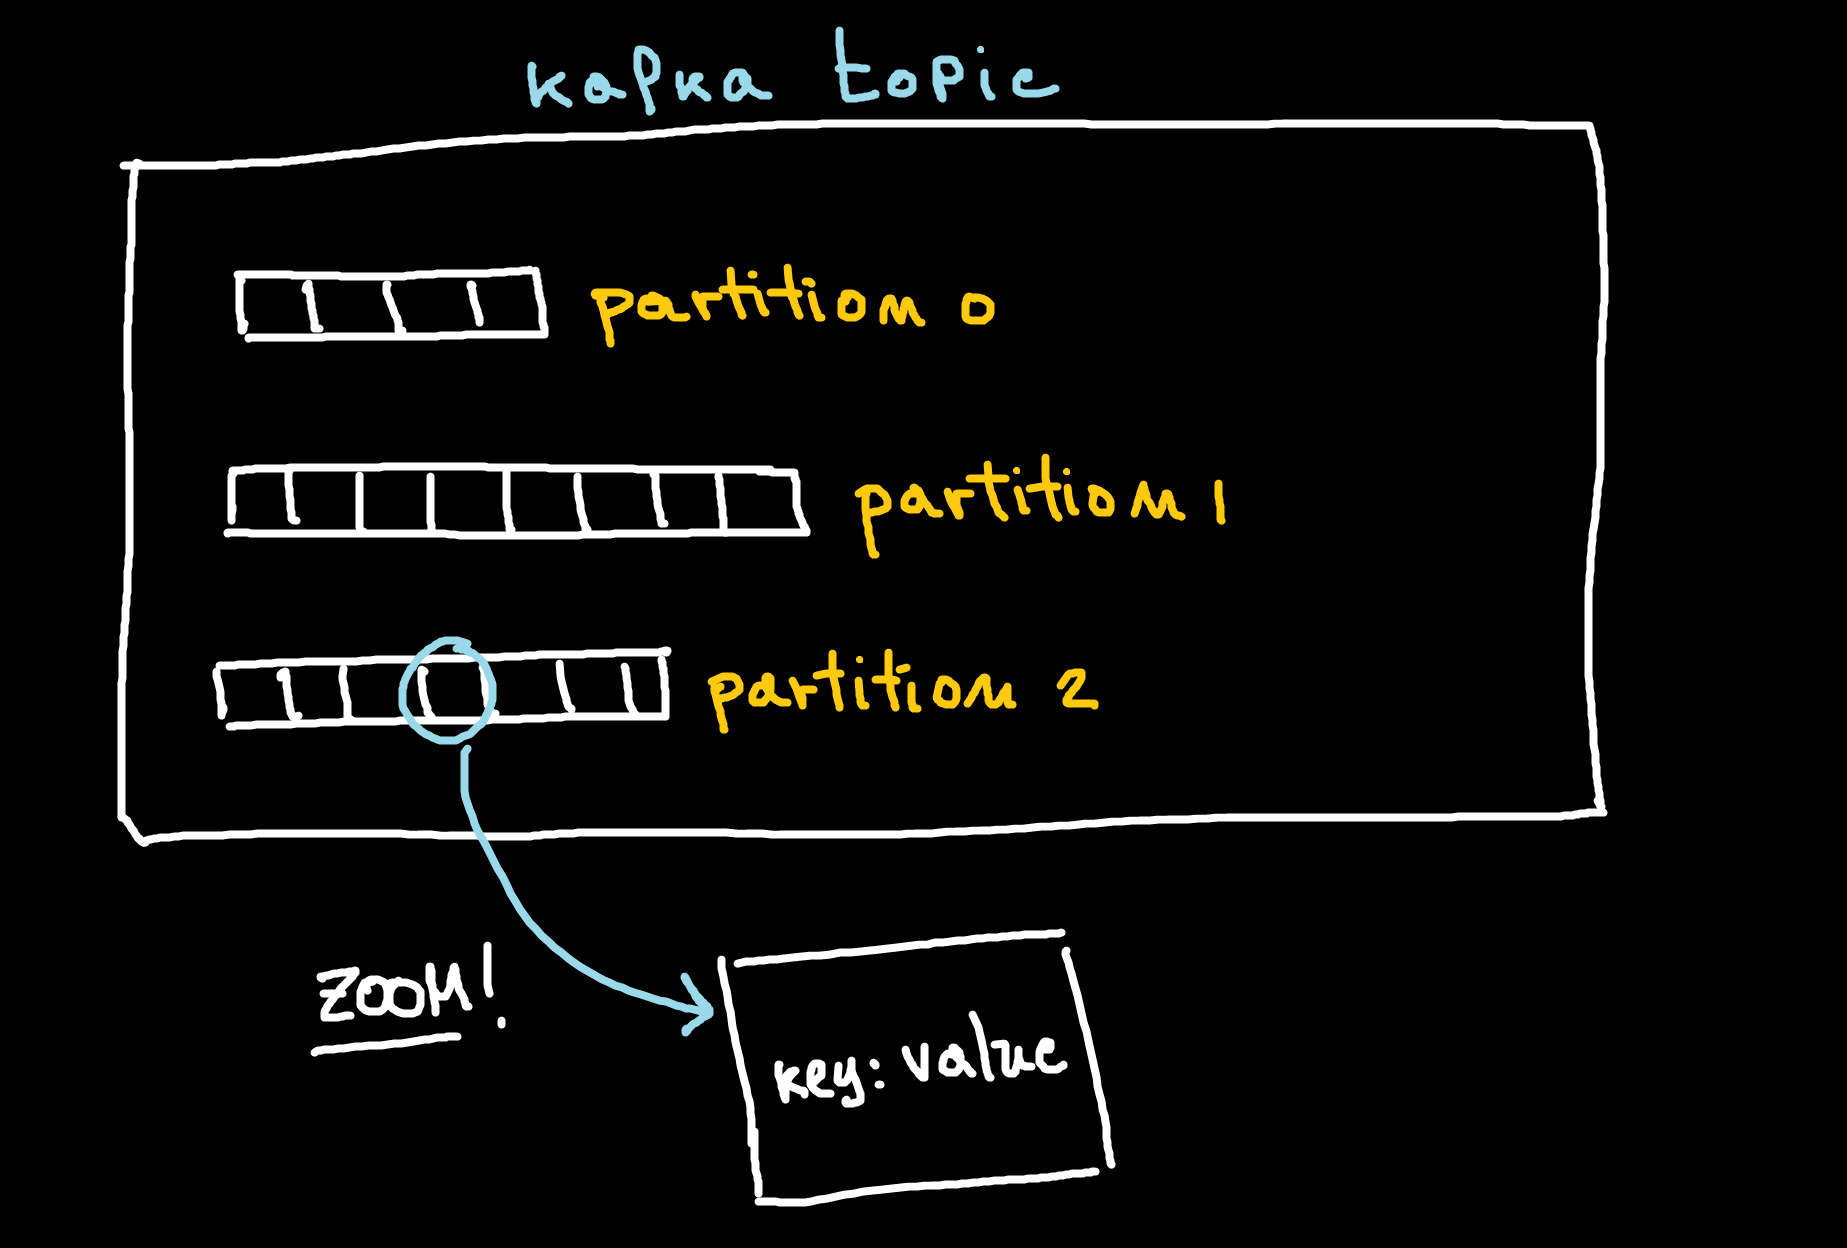 kafka topic
partition 0
partition 1
partition 2
ZOOM!
key: value